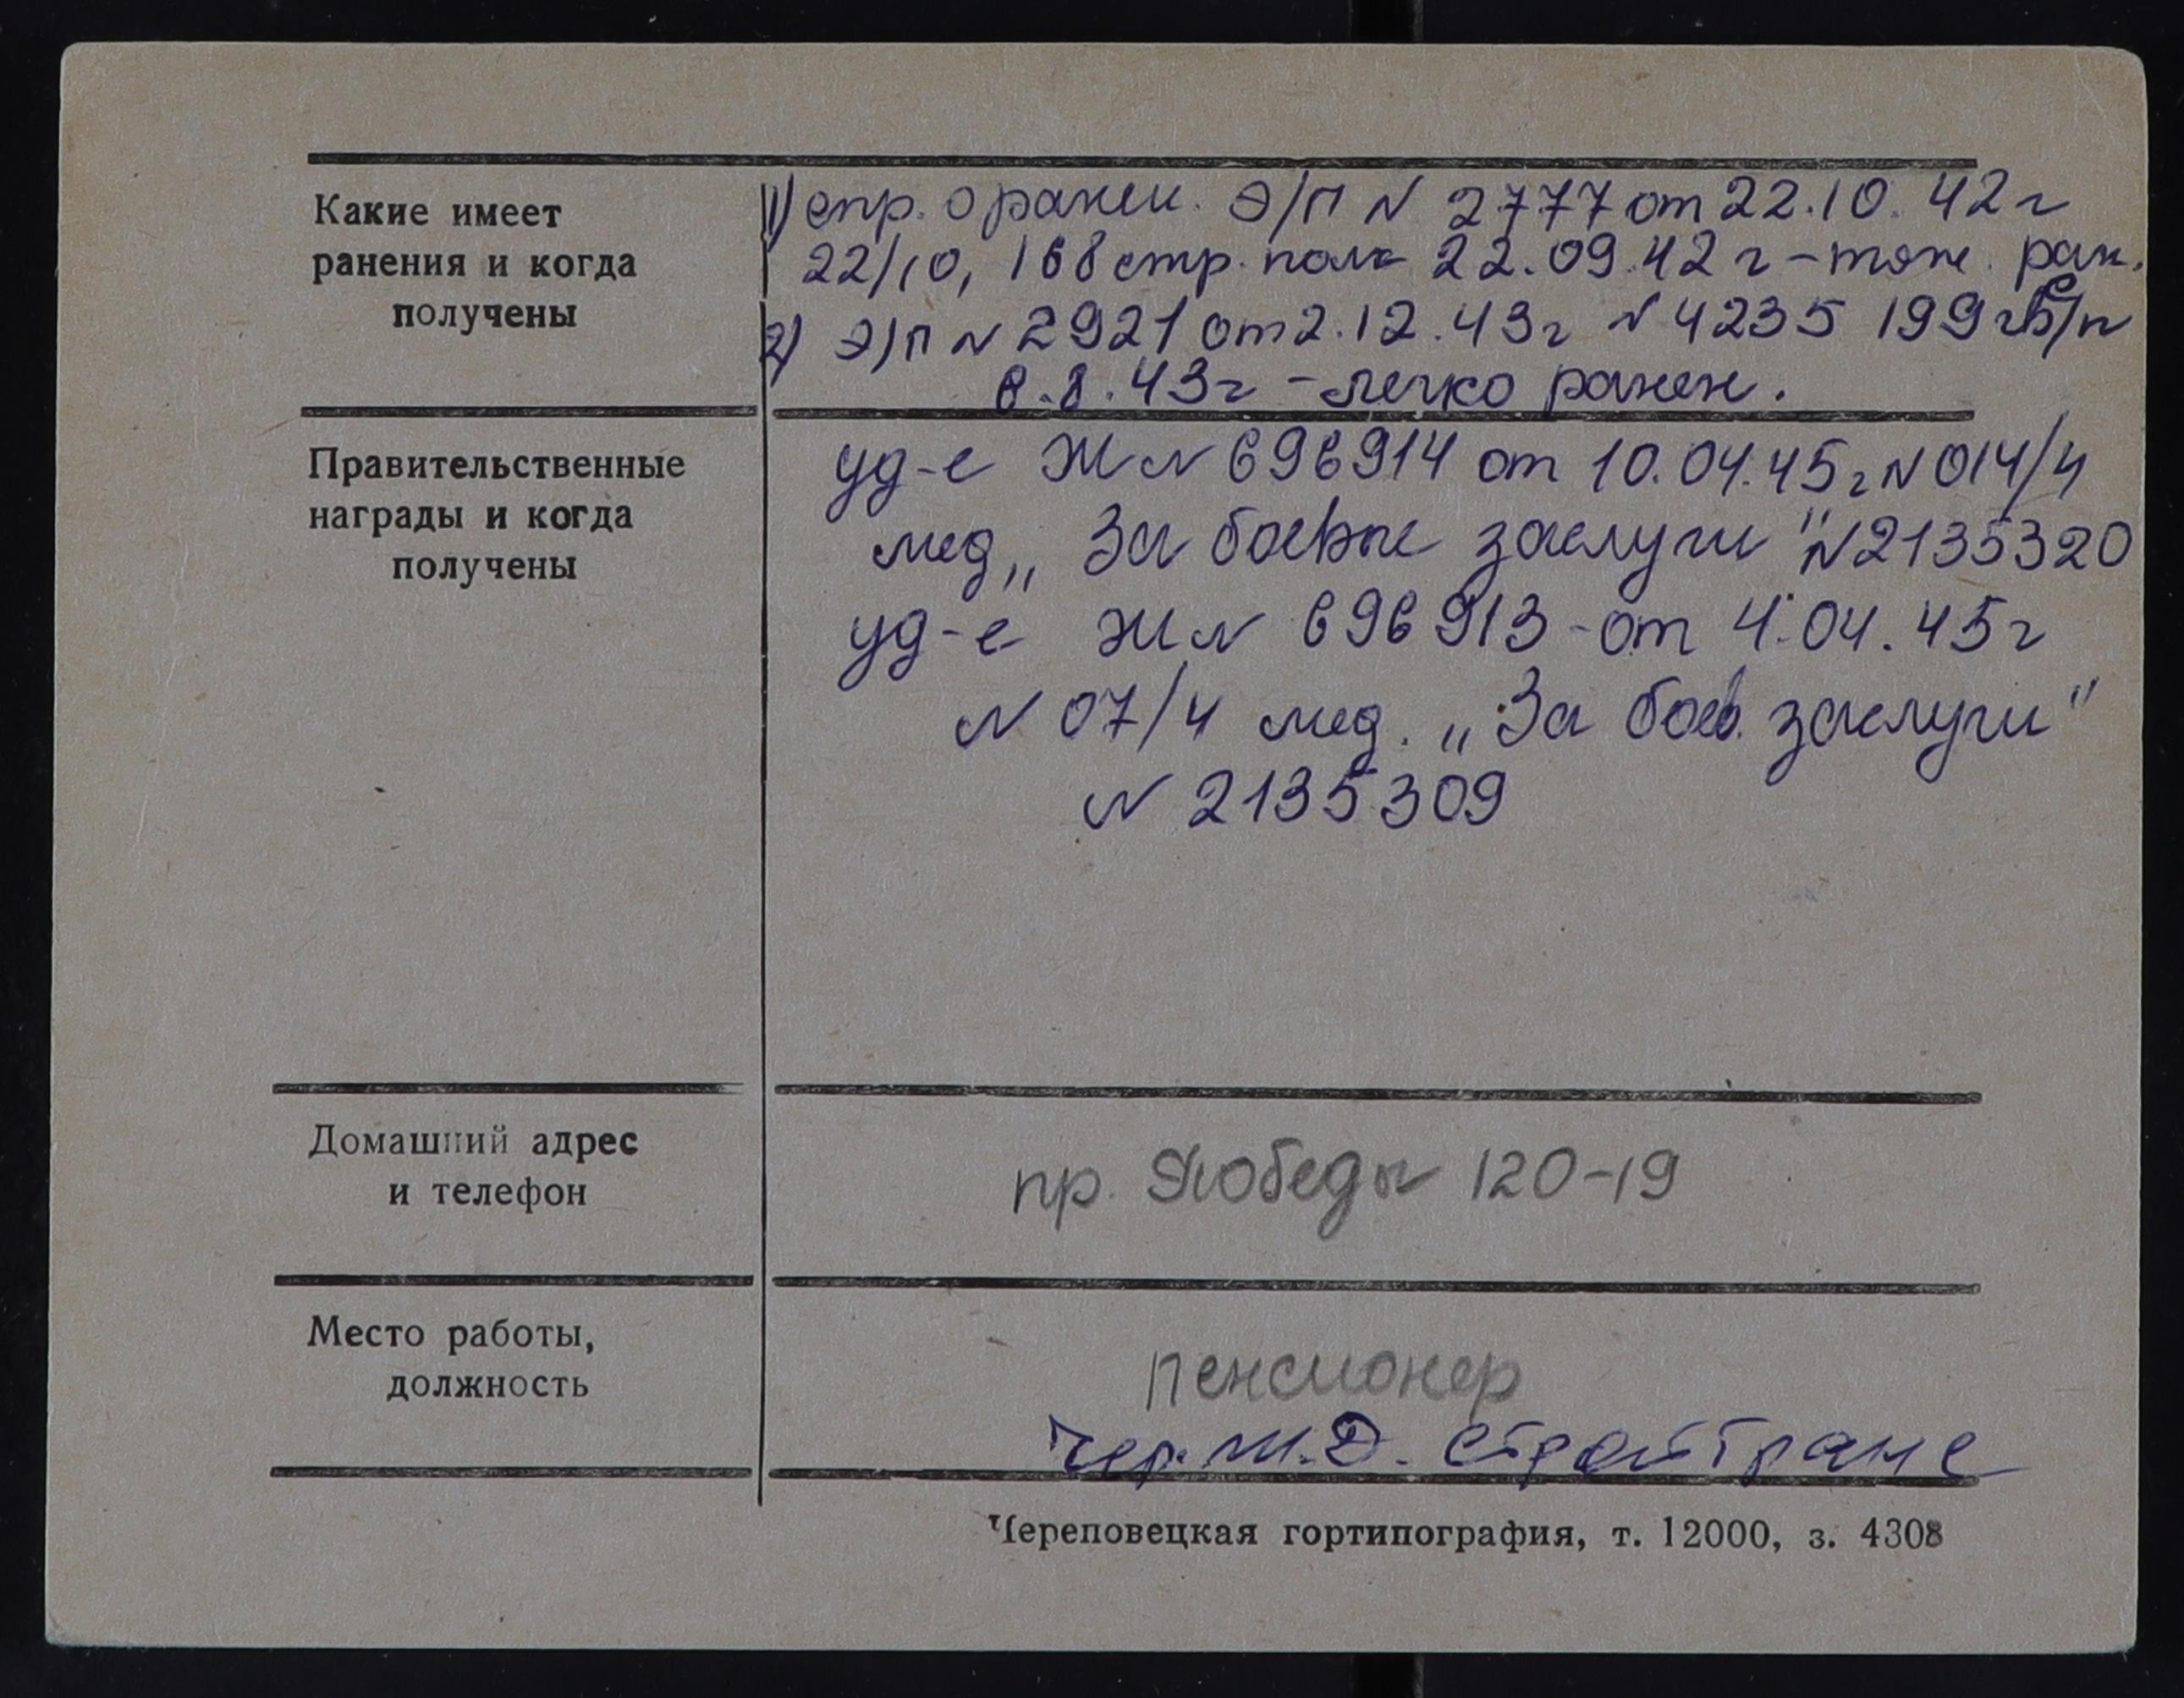 Какие имеет
ранения и когда
получены
1) спр. о ранен. Э/П N 2777 от 22.10.42 г
22/10, 168 стр. полк 22.09.42 г - тяж. ран.
2) Э/П N 2921 от 2.12.43 г N 4235 199
8.43 г - легко ранен.
Правительственные
награды и когда
получены
уд-е Ж N 696914 от 10.04.45 г N 014/4
мед „За боевые заслуги" N 2135320
уд-е Ж N 696913 - от 4.04.45 г
N 07/4 мед. „За боев. заслуги"
N 2135309
Домашний адрес
и телефон
пр. Победы 120-19
Место работы,
должность
пенсионер
Чер. Ж.Д. стройтранс
Череповецкая гортипография, т. 12000, з. 4308